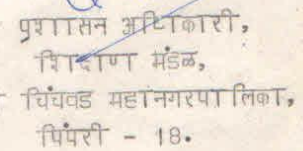 प्रशासन अधिकारी,
शिक्षण मंडळ,
चिंचवड महानगरपालिका,
पिंपरी - 18.